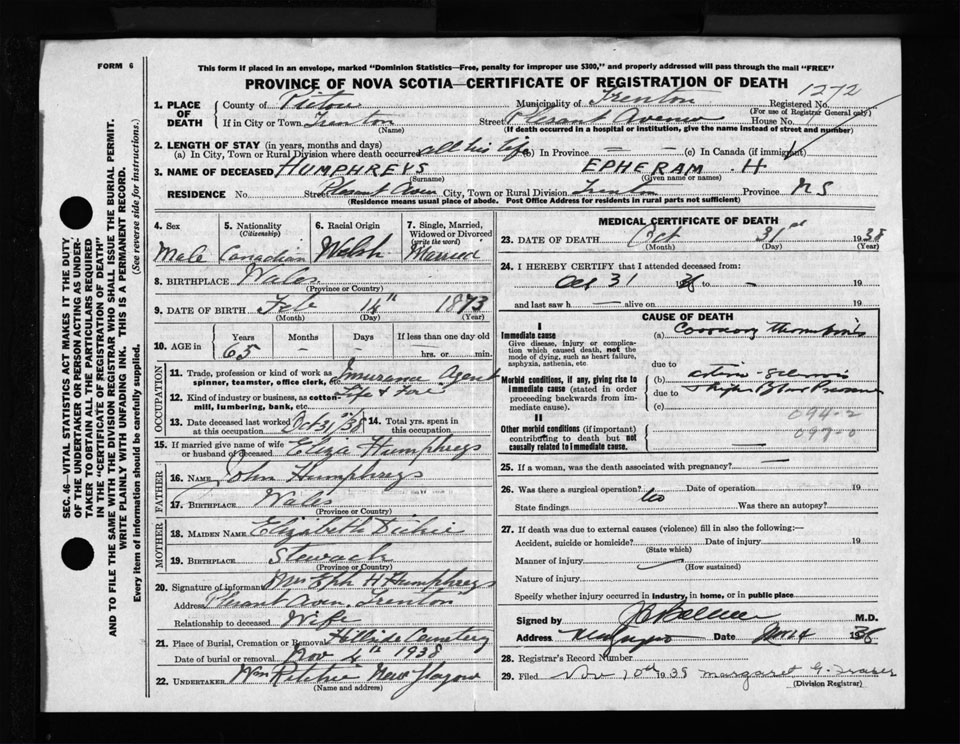 FORM 6
This form if placed in an envelope, marked "Dominion Statistics—Free, penalty for improper use $300," and properly addressed will pass through the mail "FREE"
PROVINCE OF NOVA SCOTIA—CERTIFICATE OF REGISTRATION OF DEATH
1272
1. PLACE OF DEATH County of Pictou Municipality of Trenton Registered No.
(For use of Registrar General only)
If in City or Town Trenton Street Plesant Avenue House No.
(Name) (If death occurred in a hospital or institution, give the name instead of street and number)
2. LENGTH OF STAY (in years, months and days)
(a) In City, Town or Rural Division where death occurred all his life (b) In Province — — (c) In Canada (if immigrant)
3. NAME OF DECEASED HUMPHREYS EPHERAM . H
(Surname) (Given name or names)
RESIDENCE No. Street Plesant Aven City, Town or Rural Division Trenton Province N S
(Residence means usual place of abode. Post Office Address for residents in rural parts not sufficient)
4. Sex 5. Nationality (Citizenship) 6. Racial Origin 7. Single, Married, Widowed or Divorced (write the word)
Male Canadian Welsh Married
8. BIRTHPLACE Wales
(Province or Country)
9. DATE OF BIRTH Feb 14th 1873
(Month) (Day) (Year)
10. AGE in Years Months Days If less than one day old
65 — — hrs. or min.
OCCUPATION
11. Trade, profession or kind of work as spinner, teamster, office clerk, Insurance Agent
12. Kind of industry or business, as cotton-mill, lumbering, bank, etc. Life & Fire
13. Date deceased last worked at this occupation Oct 31/38 14. Total yrs. spent in this occupation
15. If married give name of wife or husband of deceased Eliza Humphreys
FATHER
16. NAME John Humphreys
17. BIRTHPLACE Wales
(Province or Country)
MOTHER
18. MAIDEN NAME Elizabeth
19. BIRTHPLACE
(Province or Country)
20. Signature of informant Mrs Eph H Humphreys
Address Plesant Aven. Trenton
Relationship to deceased Wife
21. Place of Burial, Cremation or Removal Hillside Cemetery
Date of burial or removal Nov 4th 1938
22. UNDERTAKER Wm Ritchie New Glasgow
(Name and address)
MEDICAL CERTIFICATE OF DEATH
23. DATE OF DEATH Oct 31st 1938
(Month) (Day)
24. I HEREBY CERTIFY that I attended deceased from:
Oct 31 38 to — 19
and last saw h — alive on 19
CAUSE OF DEATH
I
Immediate cause (a) Coronary Thrombosis
Give disease, injury or complication which caused death, not the mode of dying, such as heart failure, asphyxia, asthenia, etc.
due to
Morbid conditions, if any, giving rise to immediate cause (stated in order proceeding backwards from immediate cause). (b)
due to
(c)
094-2
097-0
II
Other morbid conditions (if important) contributing to death but not causally related to immediate cause.
25. If a woman, was the death associated with pregnancy? —
26. Was there a surgical operation? No Date of operation 19
State findings Was there an autopsy?
27. If death was due to external causes (violence) fill in also the following:—
Accident, suicide or homicide? Date of injury 19
(State which)
Manner of injury
(How sustained)
Nature of injury
Specify whether injury occurred in industry, in home, or in public place
Signed by M.D.
Address New Glasgow Date Nov 4 1938
28. Registrar's Record Number
29. Filed Nov 10th 1938 Margaret G. Fraser
(Division Registrar)
SEC. 46—VITAL STATISTICS ACT MAKES IT THE DUTY
OF THE UNDERTAKER OR PERSON ACTING AS UNDER-
TAKER TO OBTAIN ALL THE PARTICULARS REQUIRED
IN THE "CERTIFICATE OF REGISTRATION OF DEATH"
AND TO FILE THE SAME WITH THE DIVISION REGISTRAR WHO SHALL ISSUE THE BURIAL PERMIT.
WRITE PLAINLY WITH UNFADING INK. THIS IS A PERMANENT RECORD.
Every item of information should be carefully supplied. (See reverse side for instructions.)